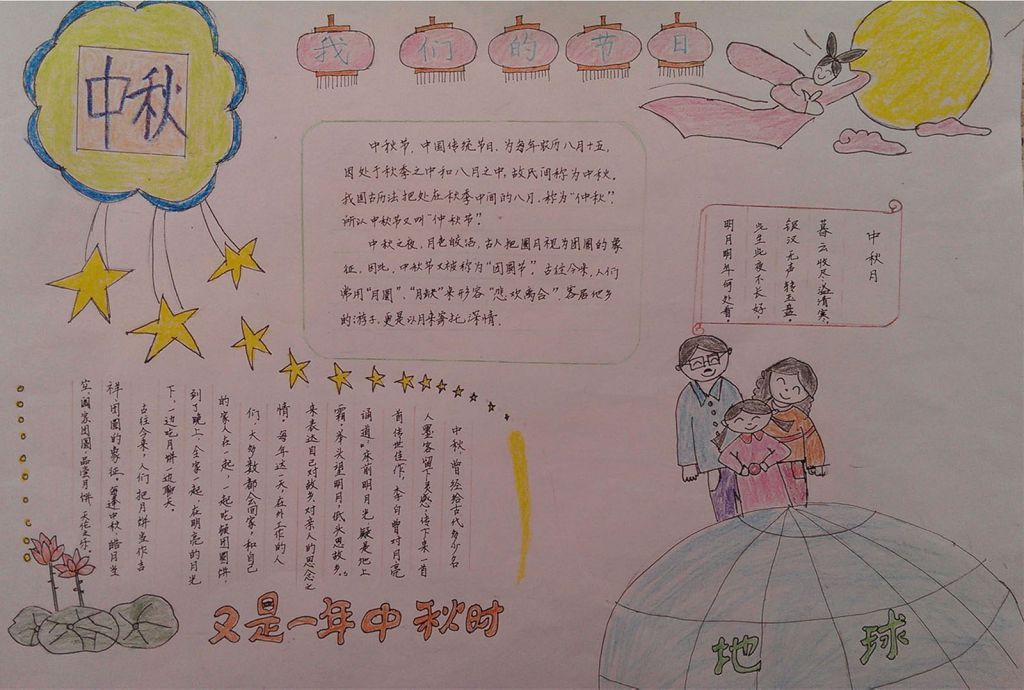 我们的节日
中秋
中秋节，中国传统节日，为每年农历八月十五，
因处于秋季之中和八月之中，故民间称为中秋。
我国古历法把处在秋季中间的八月，称为“仲秋”，
所以中秋节又叫“仲秋节”。
中秋之夜，月色皎洁，古人把圆月视为团圆的象
征，因此，中秋节又被称为“团圆节”。古往今来，人们
常用“月圆”、“月缺”来形容“悲欢离合”，客居他乡
的游子，更是以月来寄托深情。
中秋月
暮云收尽溢清寒，
银汉无声转玉盘。
此生此夜不长好，
明月明年何处看。
中秋曾经给古代多少名
人墨客留下灵感，传下来一首
首传世佳作，李白曾对月亮
诵道“床前明月光，疑是地上
霜，举头望明月，低头思故乡。”
来表达自己对故乡对亲人的思念之
情。每年这一天，在外工作的人
们，大多数都会回家和自己
的家人在一起，一起吃顿团圆饼
到了晚上，全家一起，在明亮的月光
下，一边吃月饼一边聊天。
古往今来，人们把月饼当作吉
祥团圆的象征。每逢中秋，皓月当
空，阖家团圆，品尝月饼
又是一年中秋时
地球